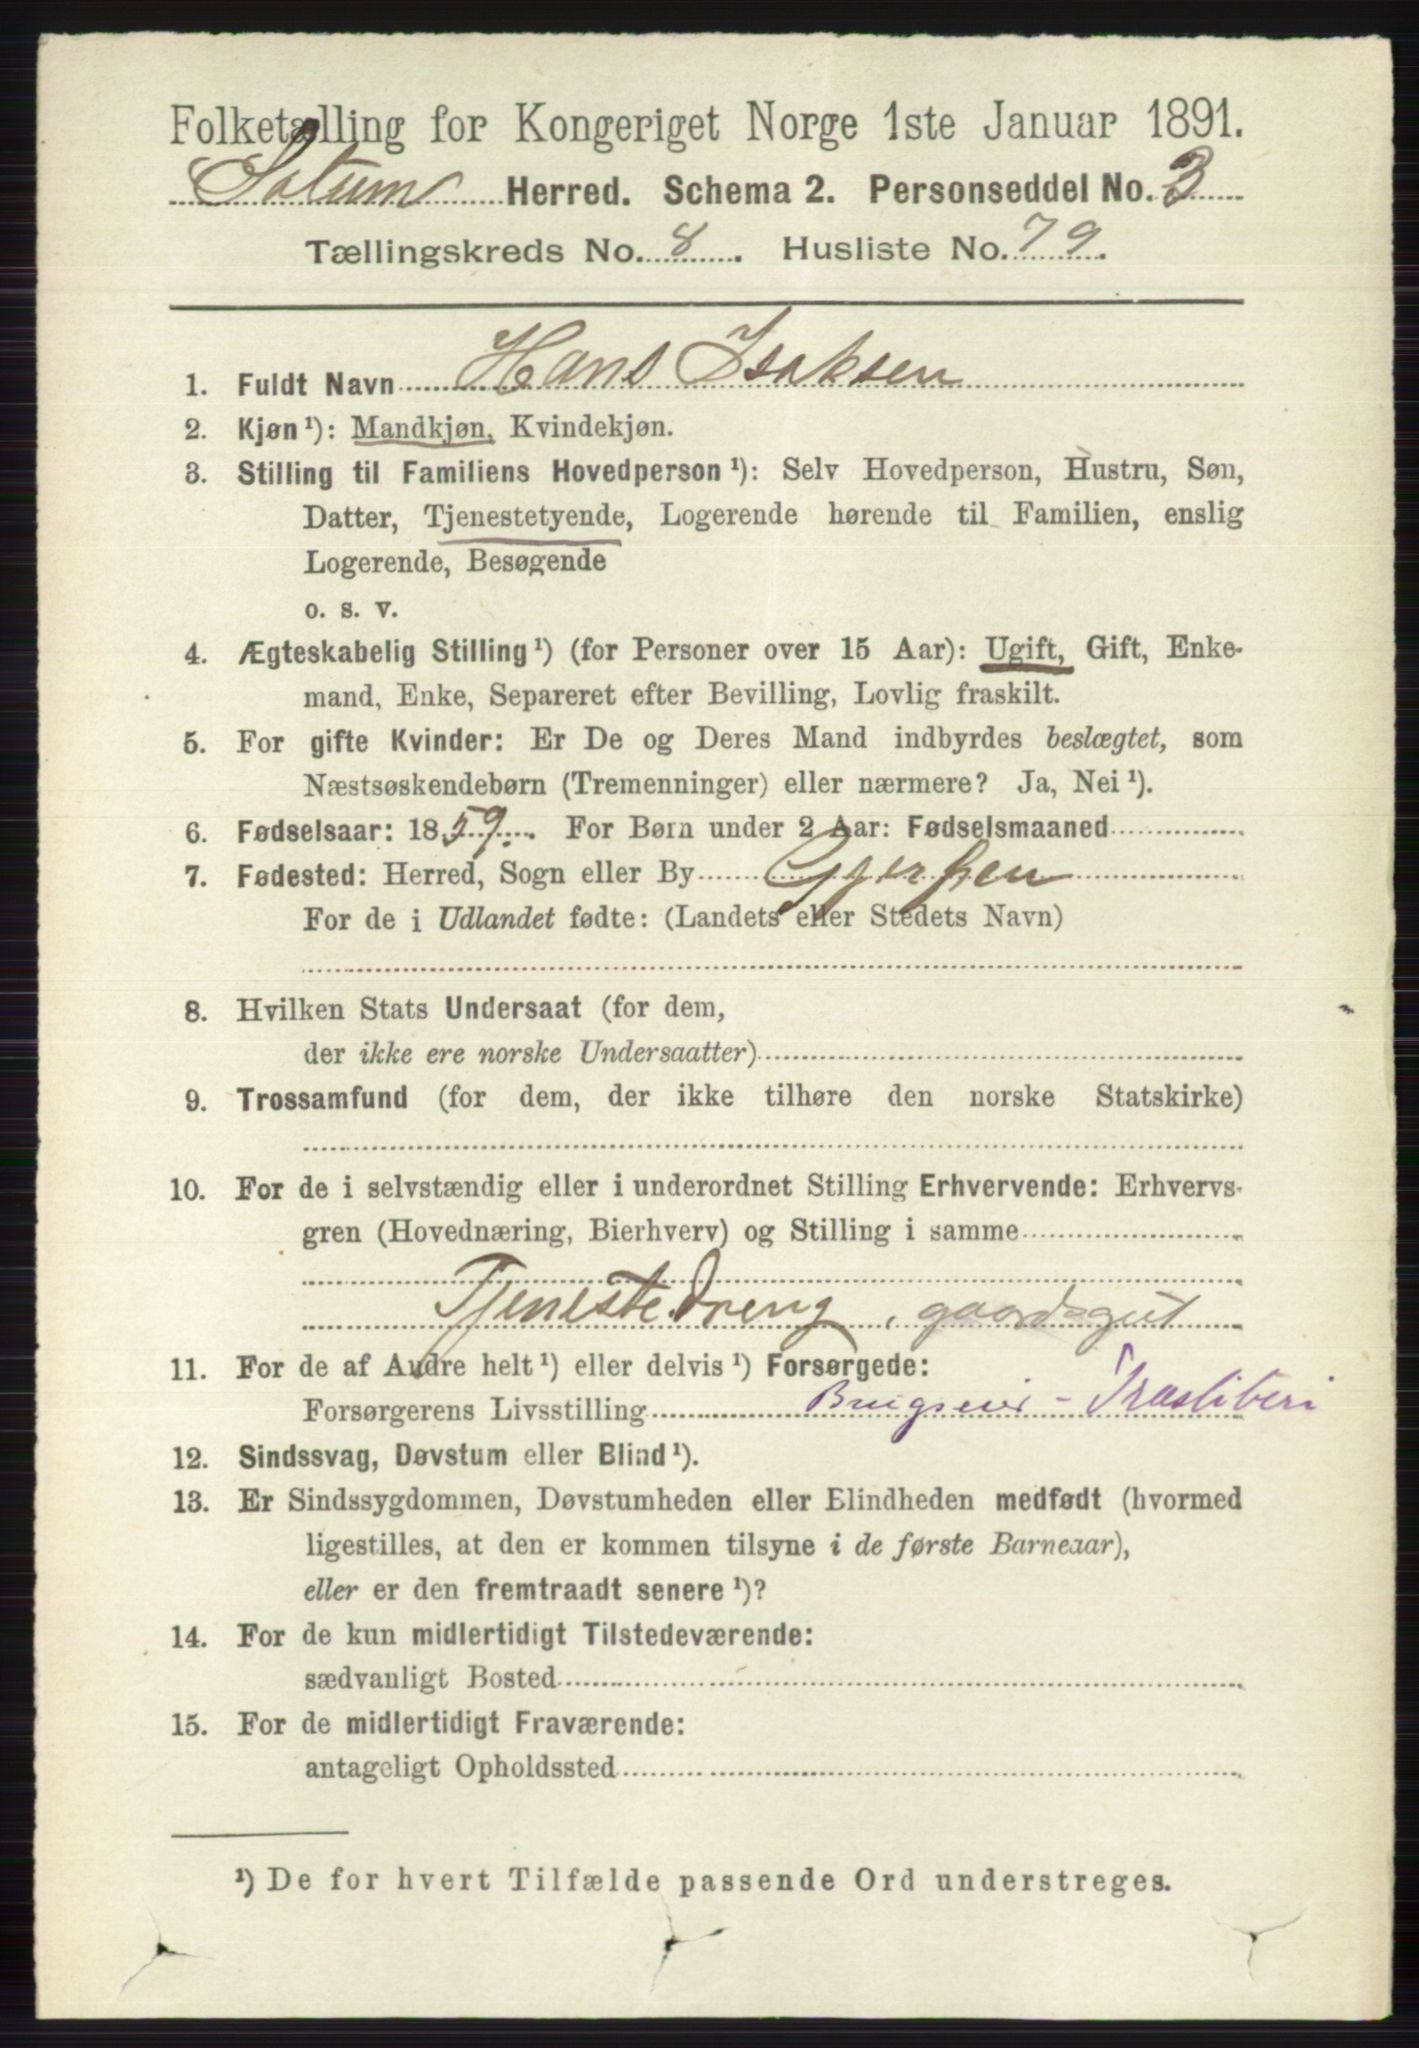 Folketælling for Kongeriget Norge 1ste Januar 1891.
Solum Herred. Schema 2. Personseddel No. 3
Tællingskreds No. 8. Husliste No. 79.
1. Fuldt Navn Hans Isaksen
2. Kjøn ¹): Mandkjøn, Kvindekjøn.
3. Stilling til Familiens Hovedperson ¹): Selv Hovedperson, Hustru, Søn,
Datter, Tjenestetyende, Logerende hørende til Familien, enslig
Logerende, Besøgende
o. s. v.
4. Ægteskabelig Stilling ¹) (for Personer over 15 Aar): Ugift, Gift, Enke-
mand, Enke, Separeret efter Bevilling, Lovlig fraskilt.
5. For gifte Kvinder: Er De og Deres Mand indbyrdes beslægtet, som
Næstsøskendebørn (Tremenninger) eller nærmere? Ja, Nei ¹).
6. Fødselsaar: 1859. For Børn under 2 Aar: Fødselsmaaned
7. Fødested: Herred, Sogn eller By Gjerpen
For de i Udlandet fødte: (Landets eller Stedets Navn)
8. Hvilken Stats Undersaat (for dem,
der ikke ere norske Undersaatter)
9. Trossamfund (for dem, der ikke tilhøre den norske Statskirke)
10. For de i selvstændig eller i underordnet Stilling Erhvervende: Erhvervs-
gren (Hovednæring, Bierhverv) og Stilling i samme
Tjenestedreng, gaardsgut
11. For de af Andre helt ¹) eller delvis ¹) Forsørgede:
Forsørgerens Livsstilling Brugseier -
12. Sindssvag, Døvstum eller Blind ¹).
13. Er Sindssygdommen, Døvstumheden eller Blindheden medfødt (hvormed
ligestilles, at den er kommen tilsyne i de første Barneaar),
eller er den fremtraadt senere ¹)?
14. For de kun midlertidigt Tilstedeværende:
sædvanligt Bosted
15. For de midlertidigt Fraværende:
antageligt Opholdssted
¹) De for hvert Tilfælde passende Ord understreges.